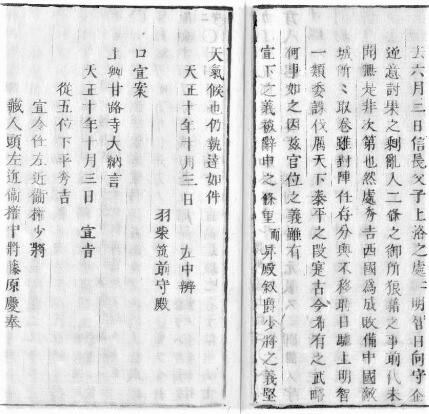 去六月三日信長父子上洛之處ニ明智日向守企
逆意討果之剩亂人二條之御所狼藉之事前代未
聞無是非次第也然處秀吉西國爲成敗備中國敵
城所々取卷雖對陣任存分與不移時日馳上明智
一類悉誅伐屬天下泰平之段寔古今希有之武略
何事如之因茲官位之義雖有
宣下之義被辭申之條重而昇殿叙爵少將之義堅
天氣候也仍執達如件
天正十年十月三日 左中辨
羽柴筑前守殿
口宣案
上卿甘路寺大納言
天正十年十月三日 宣旨
從五位下平秀吉
宣令任左近衞權少將
藏人頭左近衞權中將藤原慶奉